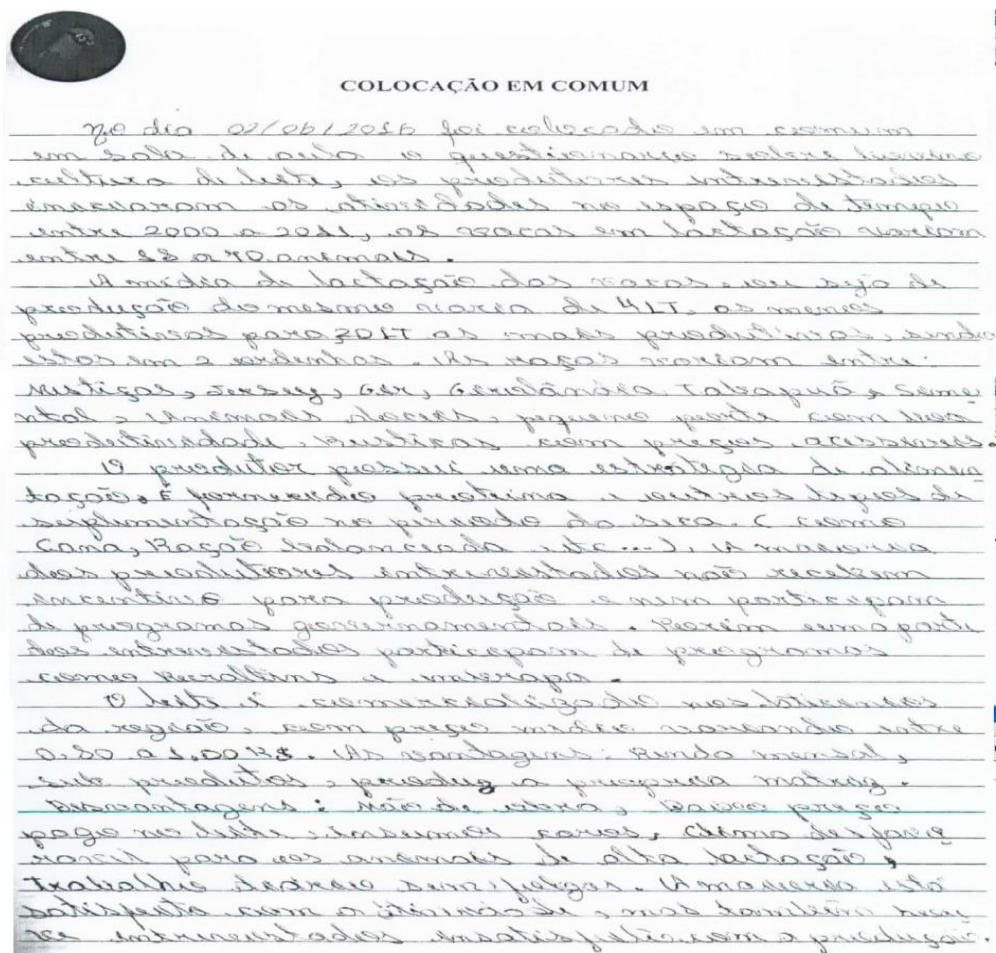 COLOCAÇÃO EM COMUM
No dia 02/06/2016 foi colocado em comum
em sala de aula o questionario sobre bovino
cultura de leite, os produtores entrevistados
iniciaram as atividades no espaço de tempo
entre 2000 a 2011, as vacas em lactação variam
entre 12 a 70 animais.
A média de lactação das vacas, ou seja de
produção do mesmo varia de 4LT, as menos
produtivas para 20LT as mais produtivas, sendo
estas em 2 ordenhas. As raças variam entre:
Mestiças, Jersey, Gir, Girolândia, Tabapuã e Seme
ntal, Animais doceis, pequeno porte com boa
produtividade, Rusticas com preços acessiveis.
O produtor possui uma estrategia de alimen
tação. É fornecido proteina e outros tipos de
suplementação no periodo da seca. ( como
Cana, Ração balanciada etc...). A maioria
dos produtores entrevistados não recebem
incentivo para produção e nem participam
de programas governamentais. Porém uma parte
dos entrevistados participam de programas
como e
O leite é comercializado nos laticinios
da região, com preço médio variando entre
0,80 a 1,00 R$. As vantagens: Renda mensal,
sub produtos, produz a propria matriz.
Desvantagens: Mão de obra, Baixo preço
pago no leite, insumos caros, Clima desfavo
ravel para os animais de alta lactação,
Trabalho diario sem folgas. A maioria está
satisfeita com a atividade, mas também houv
entrevistados com a produção.